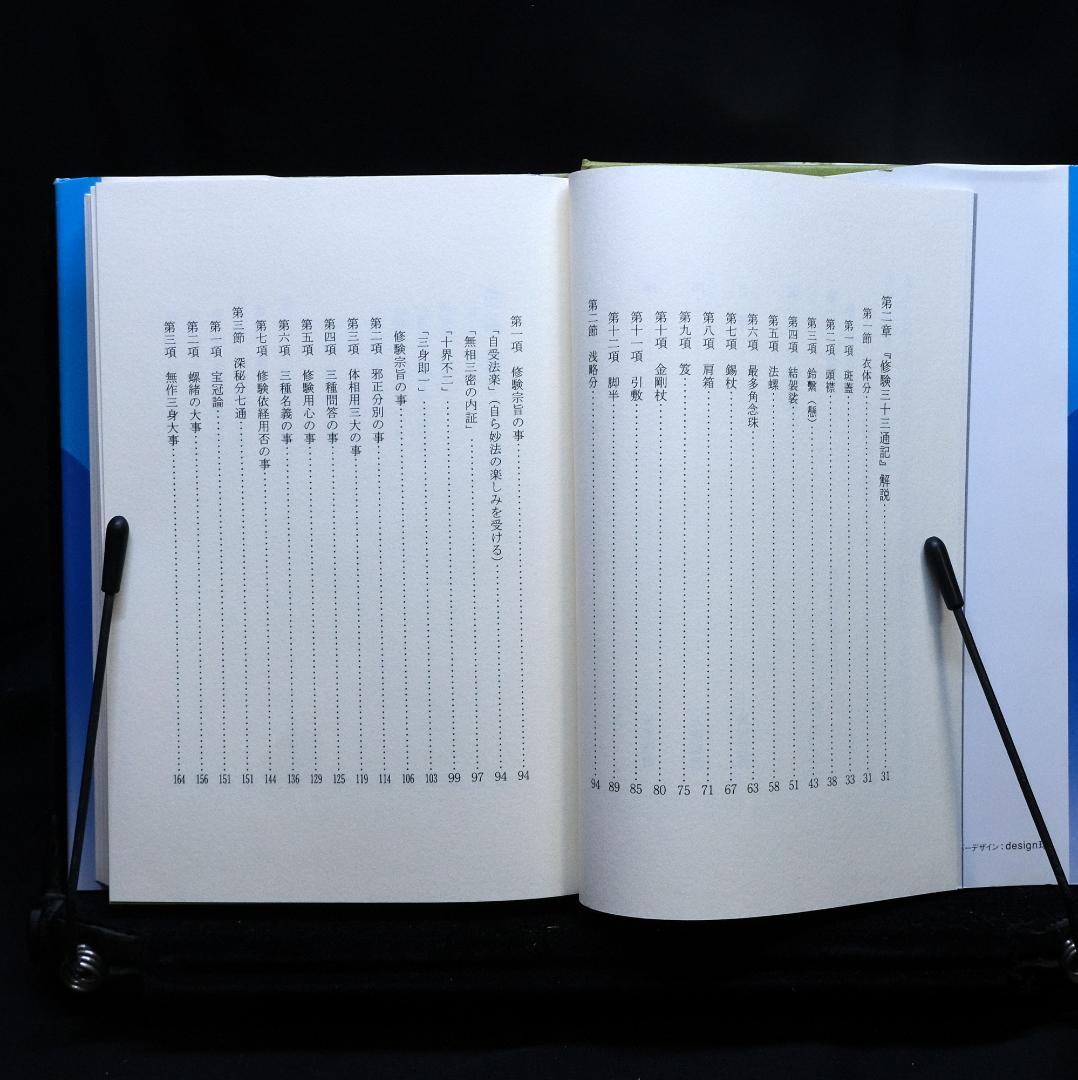 第二章 『修験三十三通記』解説……31
第一節 衣体分……31
第一項 斑蓋……33
第二項 頭襟……38
第三項 鈴繋(懸)……43
第四項 結袈裟……51
第五項 法螺……58
第六項 最多角念珠……63
第七項 錫杖……67
第八項 肩箱……71
第九項 笈……75
第十項 金剛杖……80
第十一項 引敷……85
第十二項 脚半……89
第二節 浅略分……94
第一項 修験宗旨の事……94
「自受法楽」(自ら妙法の楽しみを受ける)……94
「無相三密の内証」……97
「十界不二」……99
「三身即一」……103
修験宗旨の事……106
第二項 邪正分別の事……114
第三項 体相用三大の事……119
第四項 三種問答の事……125
第五項 修験用心の事……129
第六項 三種名義の事……136
第七項 修験依経用否の事……144
第三節 深秘分七通……151
第一項 宝冠論……151
第二項 螺緒の大事……156
第三項 無作三身大事……164
ーデザイン:design